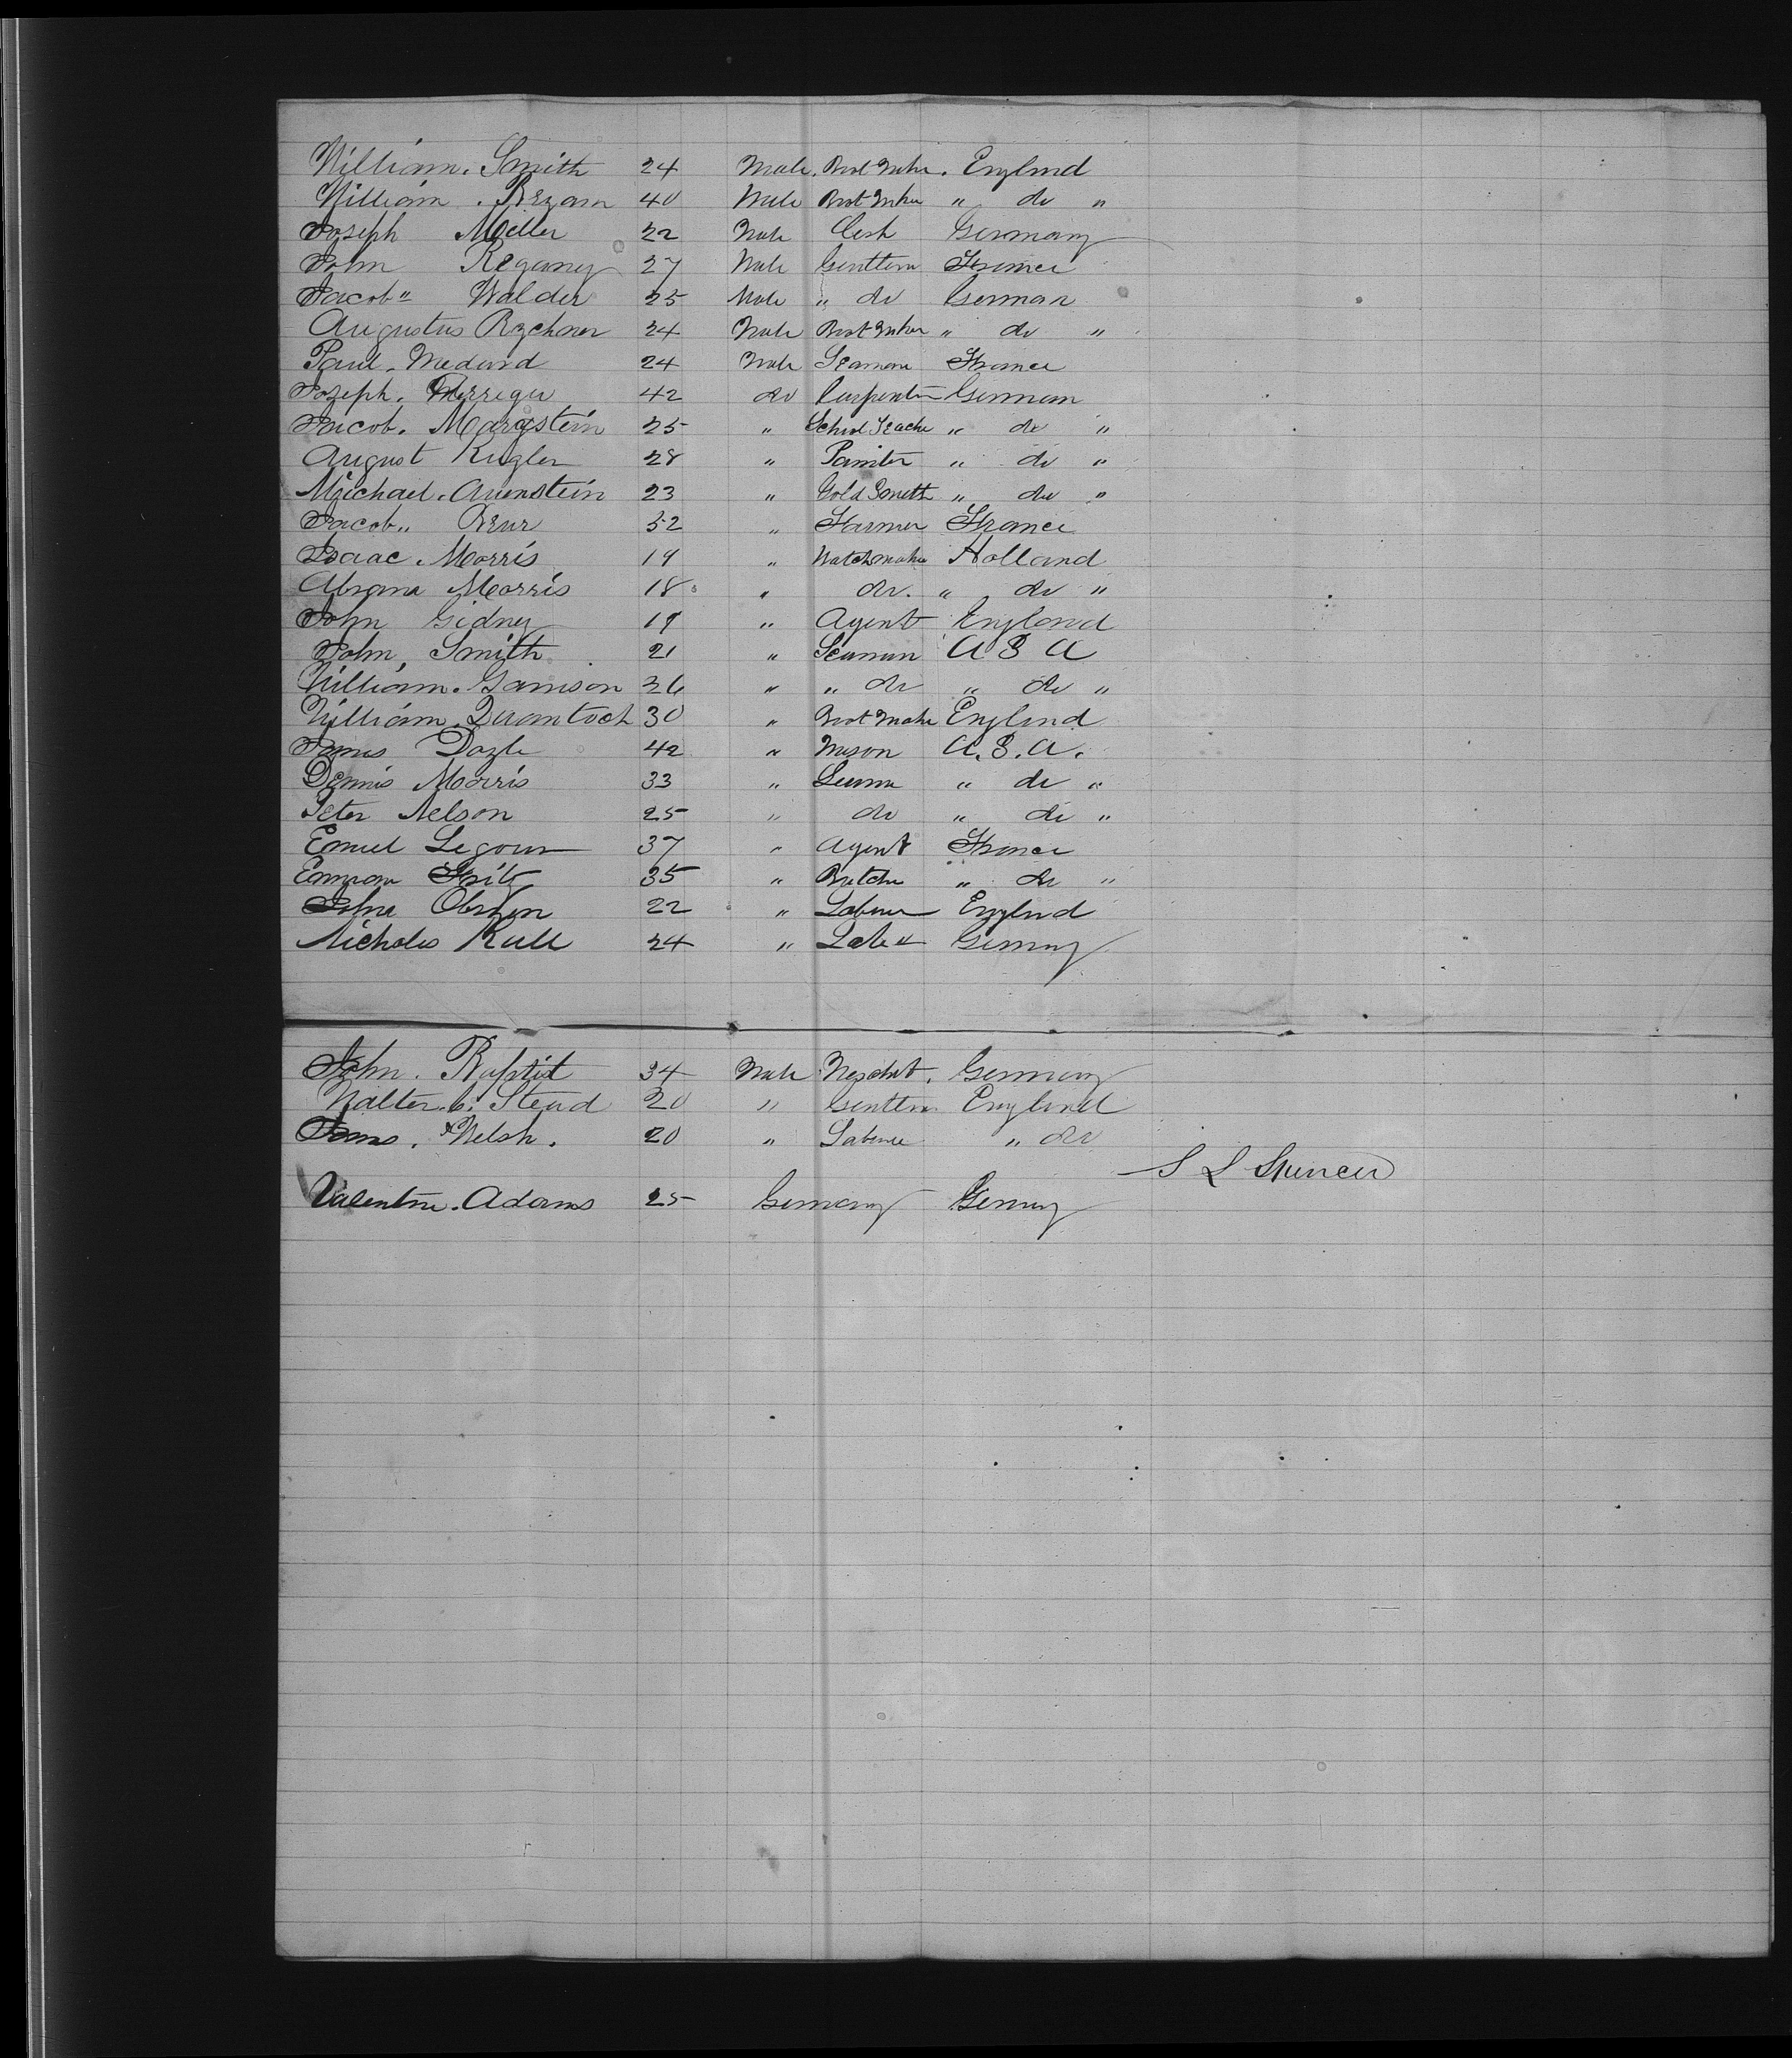 William. Smith 24 Male. Boot Maker. England
William. Bryan 40 Male Boot Maker " do "
Joseph Miller 22 Male Clerk Germany
John Regany 27 Male Gentlem France
Jacob " Walder 25 Male " do German
Augustus 24 Male Boot Maker " do "
Paul. Medard 24 Male Seaman France
Joseph. 42 do Carpenter German
Jacob. Margstein 25 " School Teache " do "
August Kugler 28 " Painter " do "
Michael. Arenstein 23 " Gold Smith " do "
Jacob " 52 " Farmer France
Isaac. Morris 19 " Watchmaker Holland
Abram Morris 18 " do. " do "
John Gidney 19 " Agent England
John, Smith 21 " Seaman A S A
William. Garrison 26 " " do " do "
William. 30 " Boot Make England
James Doyle 42 " Mason A. S. A.
Dennis Morris 33 " Seaman " do "
Peter Nelson 25 " do " do "
Emiel Legour 37 " Agent France
Fritz 35 " Butcher " do "
John 22 " Laborer England
Nicholas Kull 24 " Germany
John. Baptist 34 Male Germany
Walter. C. Stead 20 " Gentlem England
James. Welsh. 20 " Laborer " do
S L Spencer
Valentine. Adams 25 Germany Germany